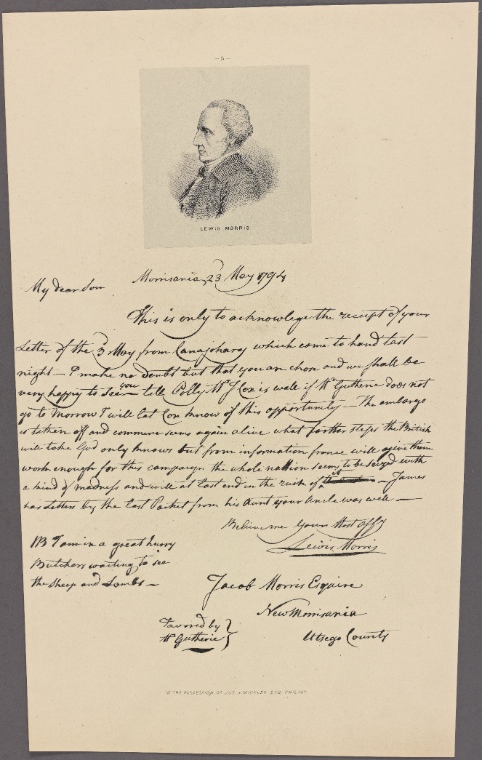 —5—
LEWIS MORRIS
Morrisania, 23 May 1794
My dear Son
This is only to acknowlege the receipt of your
Letter of the 3 May from Canajohary which came to hand last
night — I make no doubt but that you are and we shall be
very happy to see you tell Polly Mr Cox is well if Mr Gutherie does not
go to Morrow I will let Con know of this opportunity — The embargo
is taken off and commerce runs again alive what farther steps the British
will take God only knows but from information france will give them
work enough for this campaign the whole nation seems to be seized with
a kind of madness and will at last end in the ruin of it — James
has Letters by the last Packet from his Aunt your Uncle was well —
Believe me Your Most Affy
Lewis Morris
NB I am in a great hurry
Butchers waiting to see
the Sheep and Lambs —
Jacob Morris Esquire
New Morrisania
Otsego County
Favored by
Mr Gutherie
IN THE POSSESSION OF